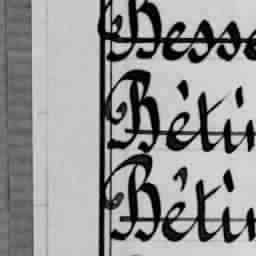 Besse
Béti
Béti